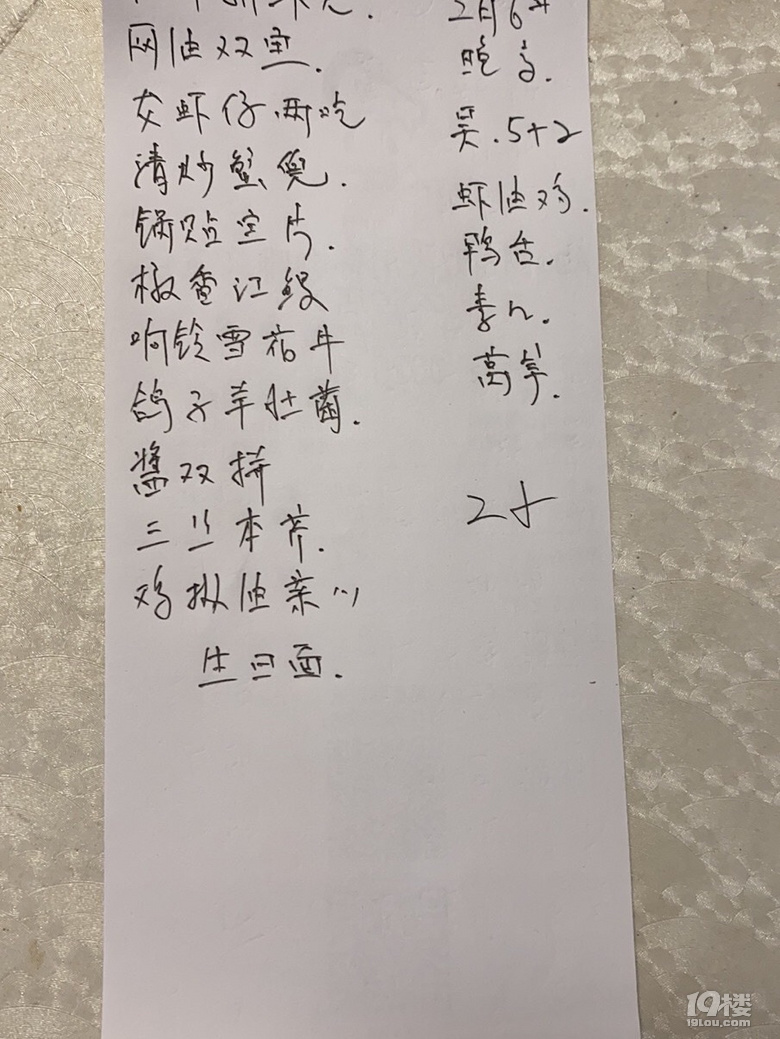 网油双宝.
女虾仔两吃
清炒蟹兜.
锅贴宝片.
椒香江鳗
响铃雪花牛
鸽子羊肚菌.
酱双拼
三丝本芹.
鸡枞油亲
生日面.
2月6
晚
吴.5+2
虾油鸡.
鸭舌.
素
莴笋.
19楼
19lou.com